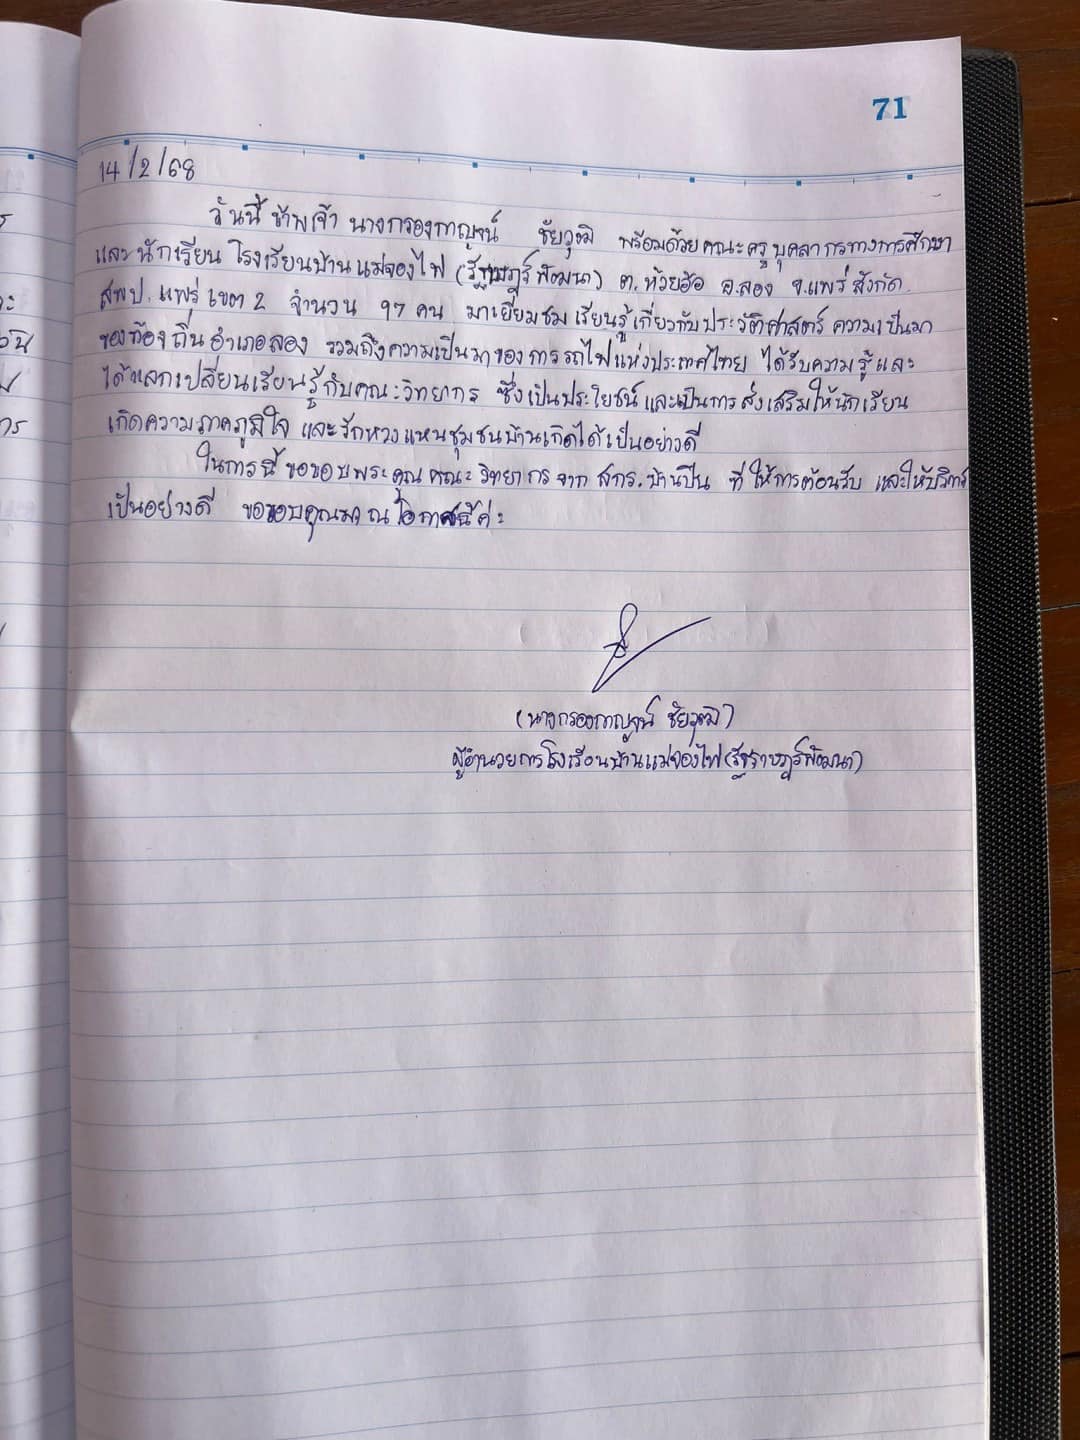 71
14/2/68
วันนี้ ข้าพเจ้า นางกรองกาญจน์ ชัยวุฒิ พร้อมด้วยคณะครู บุคลากรทางการศึกษา
และนักเรียน โรงเรียนบ้านแม่จองไฟ (รัฐราษฎร์พัฒนา) ต.ห้วยอ้อ อ.ลอง จ.แพร่ สังกัด
สพป. แพร่ เขต 2 จำนวน 97 คน มาเยี่ยมชม เรียนรู้เกี่ยวกับประวัติศาสตร์ ความเป็นมา
ของท้องถิ่นอำเภอลอง รวมถึงความเป็นมาของการรถไฟแห่งประเทศไทย ได้รับความรู้และ
ได้แลกเปลี่ยนเรียนรู้กับคณะวิทยากร ซึ่งเป็นประโยชน์และเป็นการส่งเสริมให้นักเรียน
เกิดความภาคภูมิใจ และรักหวงแหนชุมชนบ้านเกิดได้เป็นอย่างดี
ในการนี้ ขอขอบพระคุณ คณะวิทยากรจาก สกร.บ้านปิน ที่ให้การต้อนรับ และให้บริการ
เป็นอย่างดี ขอขอบคุณมา ณ โอกาสนี้ค่ะ
(นางกรองกาญจน์ ชัยวุฒิ)
ผู้อำนวยการโรงเรียนบ้านแม่จองไฟ(รัฐราษฎร์พัฒนา)